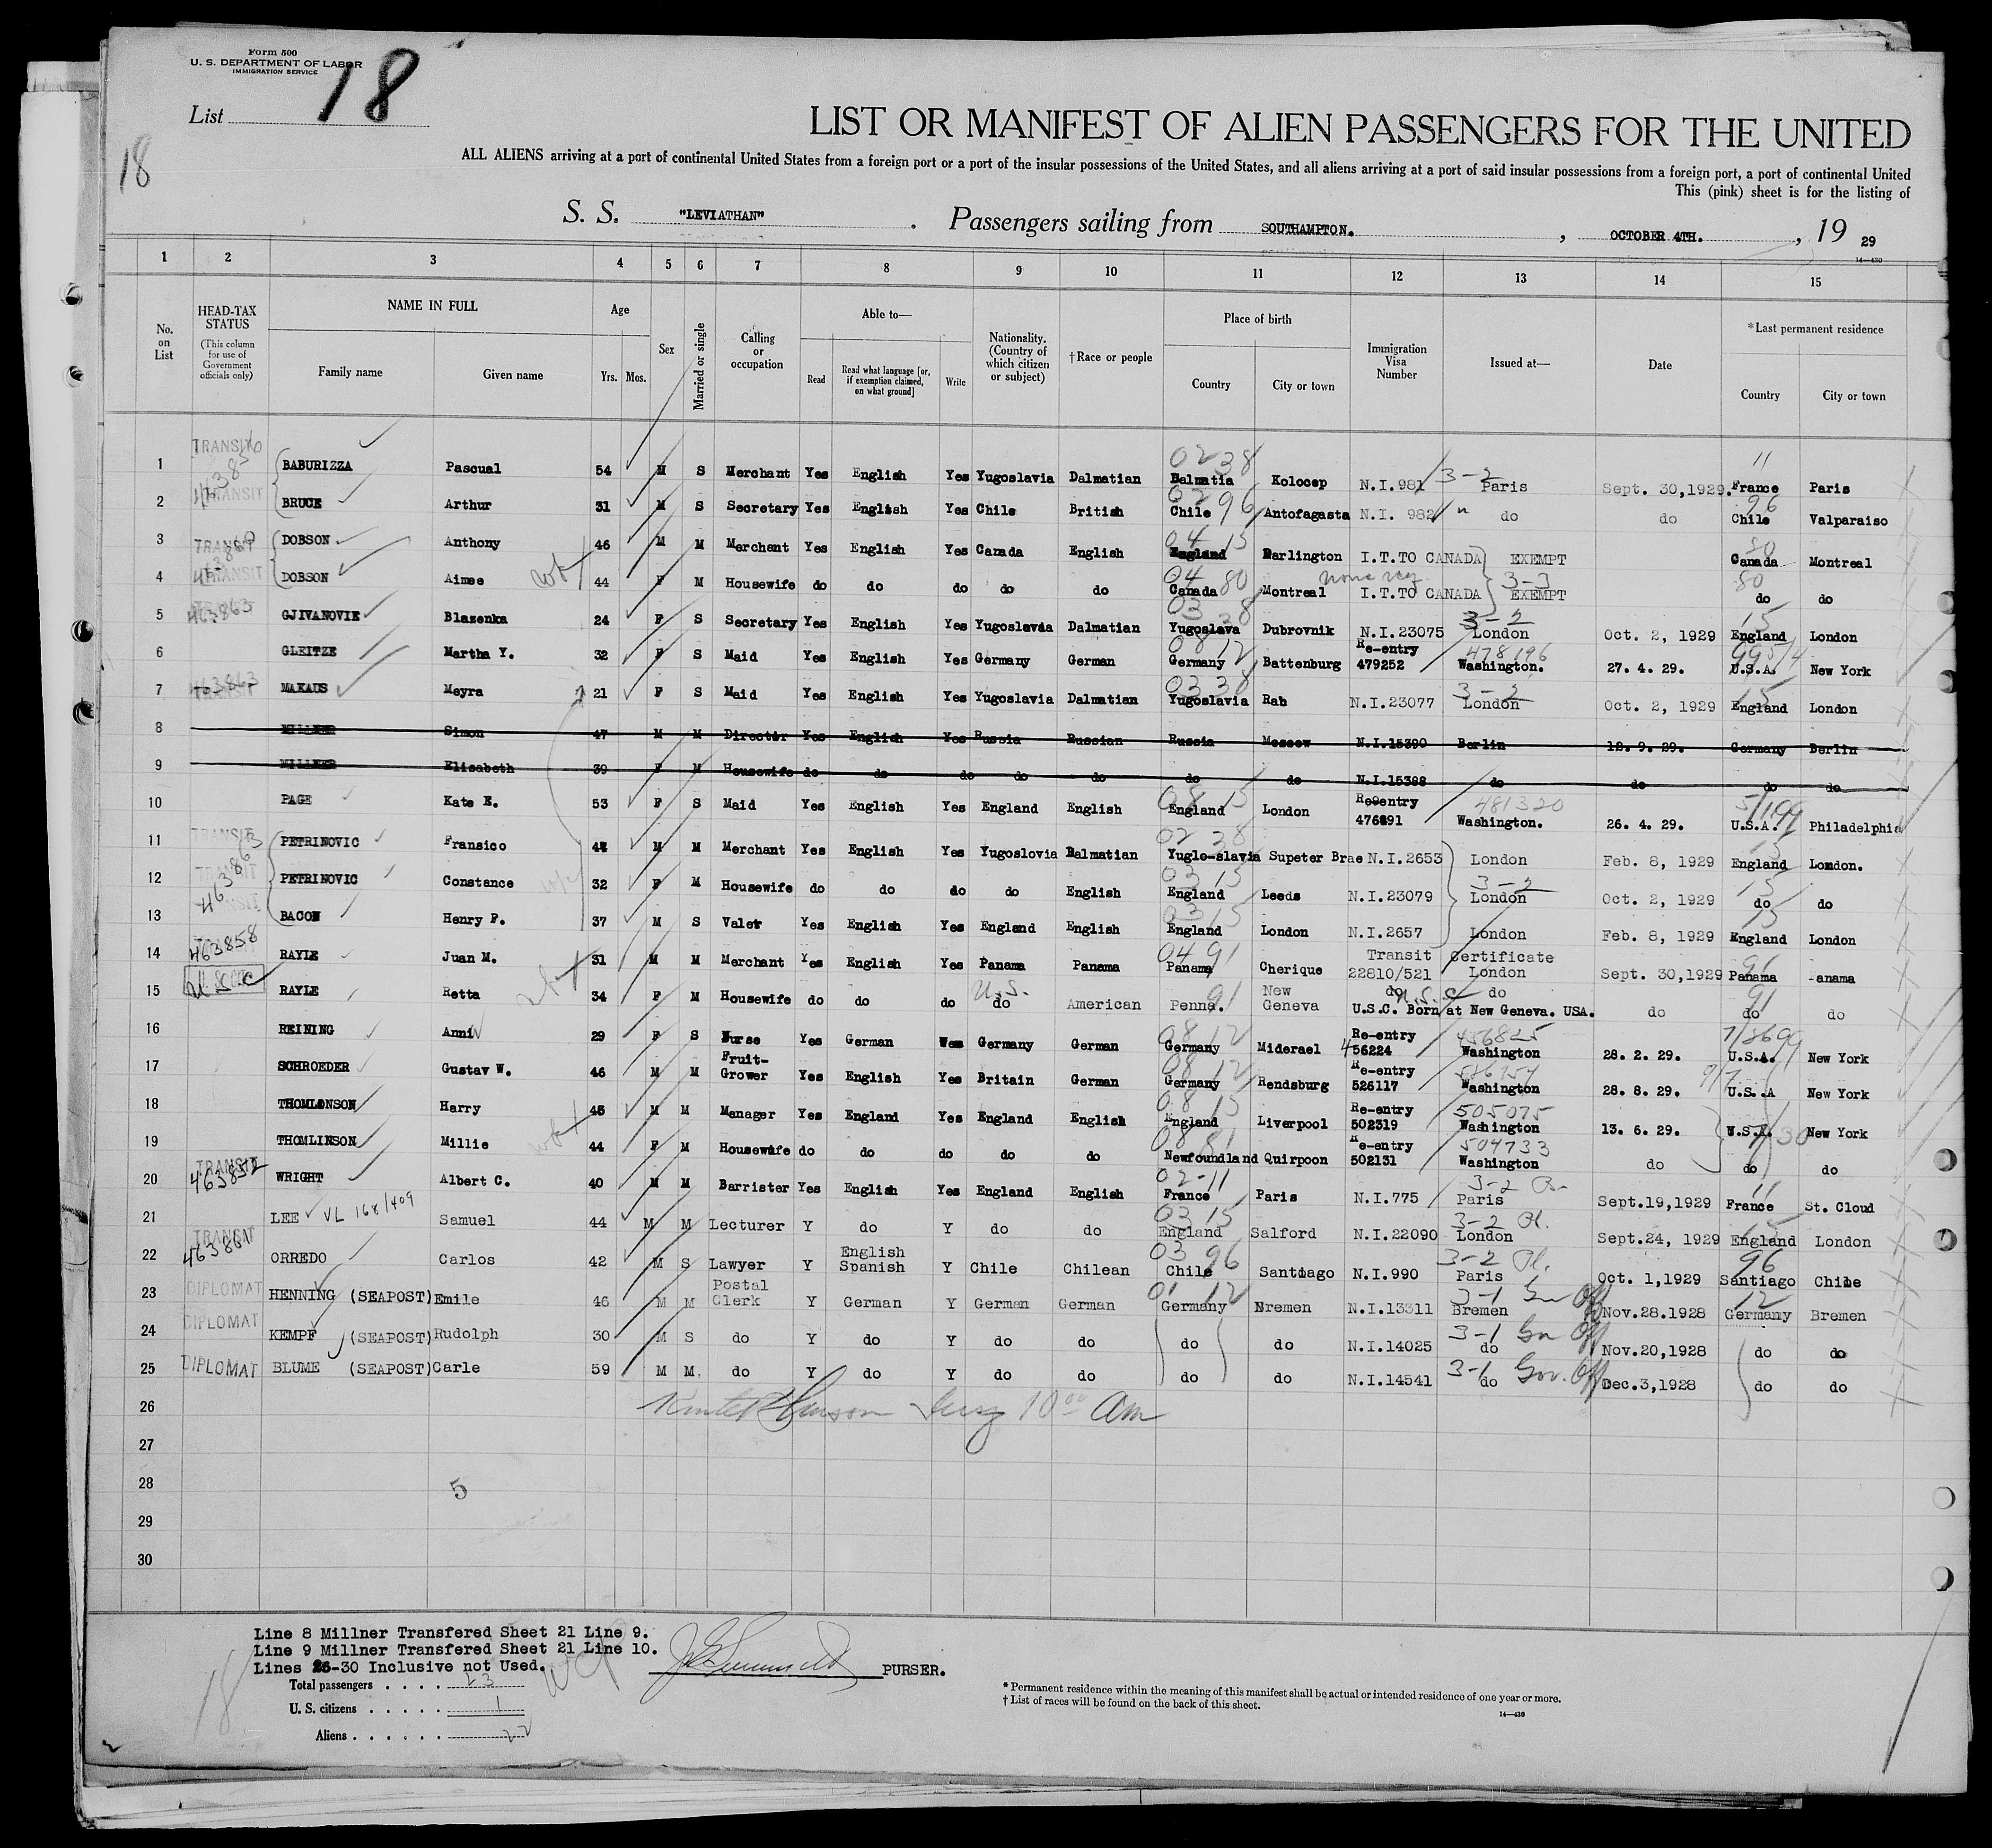 Form 500
U. S. DEPARTMENT OF LABOR
IMMIGRATION SERVICE
List 18
18
LIST OR MANIFEST OF ALIEN PASSENGERS FOR THE UNITED
ALL ALIENS arriving at a port of continental United States from a foreign port or a port of the insular possessions of the United States, and all aliens arriving at a port of said insular possessions from a foreign port, a port of continental United
This (pink) sheet is for the listing of
S. S. "LEVIATHAN" . Passengers sailing from SOUTHAMPTON. , OCTOBER 4TH. , 19 29
14—430
1 2 3 4 5 6 7 8 9 10 11 12 13 14 15
No. on List HEAD-TAX STATUS (This column for use of Government officials only) NAME IN FULL Family name Given name Age Yrs. Mos. Sex Married or single Calling or occupation Able to— Read Read what language [or, if exemption claimed, on what ground] Write Nationality. (Country of which citizen or subject) †Race or people Place of birth Country City or town Immigration Visa Number Issued at— Date *Last permanent residence Country City or town
1 TRANSIT BABURIZZA Pascual 54 M S Merchant Yes English Yes Yugoslavia Dalmatian 02 38 Dalmatia Kolocep N.I. 981 3-2 Paris Sept. 30,1929. 11 France Paris
2 TRANSIT BRUCE Arthur 31 M S Secretary Yes English Yes Chile British 02 96 Chile Antofagasta N.I. 982 " do do 96 Chile Valparaiso
3 TRANSIT DOBSON Anthony 46 M M Merchant Yes English Yes Canada English 04 15 England Darlington I.T.TO CANADA EXEMPT 80 Canada Montreal
4 TRANSIT DOBSON Aimee 44 F M Housewife do do do do do 04 80 Canada Montreal I.T.TO CANADA 3-3 EXEMPT 80 do do
5 463863 GJIVANOVIE Blazenka 24 F S Secretary Yes English Yes Yugoslavia Dalmatian 03 38 Yugoslava Dubrovnik N.I.23075 3-2 London Oct. 2, 1929 15 England London
6 GLEITZE Martha Y. 32 F S Maid Yes English Yes Germany German 08 12 Germany Battenburg Re-entry 479252 478196 Washington. 27. 4. 29. U.S.A. New York
7 463863 TRANSIT MAKAUS Meyra 21 F S Maid Yes English Yes Yugoslavia Dalmatian 03 38 Yugoslavia Rab N.I.23077 3-2 London Oct. 2, 1929 15 England London
8 MILLNER Simon 47 M M Director Yes English Yes Russia Russian Russia Moscow N.I.15390 Berlin 12. 9. 29. Germany Berlin
9 MILLNER Elisabeth 39 F M Housewife do do do do do do do N.I.15388 do do do do
10 PAGE Kate E. 53 F S Maid Yes English Yes England English 08 15 England London Re-entry 476891 481320 Washington. 26. 4. 29. U.S.A. Philadelphia
11 TRANSIT PETRINOVIC Fransico M M Merchant Yes English Yes Yugoslovia Dalmatian 02 38 Yuglo-slavia Supeter Brae N.I.2653 London Feb. 8, 1929 15 England London.
12 463863 PETRINOVIC Constance 32 F M Housewife do do do do English 03 15 England Leeds N.I.23079 3-2 London Oct. 2, 1929 15 do do
13 BACON Henry F. 37 M S Valet Yes English Yes England English 03 15 England London N.I.2657 London Feb. 8, 1929 15 England London
14 463858 RAYLE Juan M. 31 M M Merchant Yes English Yes Panama Panama 04 91 Panama Cherique Transit Certificate 22810/521 London Sept. 30,1929 91 Panama anama
15 U.S.C. RAYLE Retta 34 F M Housewife do do do U.S. do American Penna. 91 New Geneva do U.S.C. do U.S.C. Born at New Geneva. USA. do 91 do do
16 REINING Anni 29 F S Nurse Yes German Yes Germany German 08 12 Germany Miderael Re-entry 456224 456825 Washington 28. 2. 29. U.S.A. New York
17 SCHROEDER Gustav W. 46 M M Fruit-Grower Yes English Yes Britain German 08 12 Germany Rendsburg Re-entry 526117 Washington 28. 8. 29. U.S.A New York
18 THOMLINSON Harry 45 M M Manager Yes England Yes England English 08 15 England Liverpool Re-entry 502319 505075 Washington 13. 6. 29. U.S.A. New York
19 THOMLINSON Millie 44 F M Housewife do do do do do 08 81 Newfoundland Quirpoon Re-entry 502131 504733 Washington do do do
20 TRANSIT 463852 WRIGHT Albert C. 40 M M Barrister Yes English Yes England English 02-11 France Paris N.I.775 3-2 Paris Sept.19,1929 11 France St. Cloud
21 LEE VL 168/409 Samuel 44 M M Lecturer Y do Y do do 03 15 England Salford N.I.22090 3-2 Pl. London Sept.24, 1929 15 England London
22 TRANSIT 463861 ORREDO Carlos 42 M S Lawyer Y English Spanish Y Chile Chilean 03 96 Chile Santiago N.I.990 3-2 Pl. Paris Oct. 1,1929 96 Santiago Chile
23 DIPLOMAT HENNING (SEAPOST) Emile 46 M M Postal Clerk Y German Y German German 01 12 Germany Bremen N.I.13311 3-1 Gov Off Bremen Nov.28.1928 12 Germany Bremen
24 DIPLOMAT KEMPF (SEAPOST) Rudolph 30 M S do Y do Y do do do do N.I.14025 3-1 Gov Off do Nov.20,1928 do do
25 DIPLOMAT BLUME (SEAPOST) Carle 59 M M. do Y do Y do do do do N.I.14541 3-1 Gov. Off do Dec.3,1928 do do
26 10 00 Am
27
28 5
29
30
Line 8 Millner Transfered Sheet 21 Line 9.
Line 9 Millner Transfered Sheet 21 Line 10.
Lines 26-30 Inclusive not Used.
PURSER.
Total passengers . . . . 23
U. S. citizens . . . . . 1
Aliens . . . . . . 22
18
* Permanent residence within the meaning of this manifest shall be actual or intended residence of one year or more.
† List of races will be found on the back of this sheet.
14—430